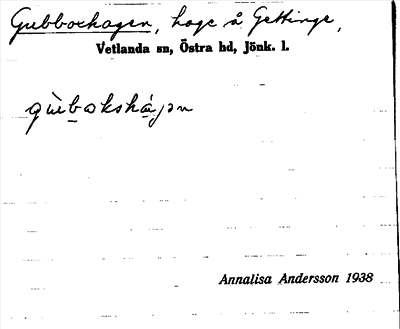 Gubbockagen, hage å Gettinge,
Vetlanda sn, Östra hd, Jönk. l.
Annalisa Andersson 1938